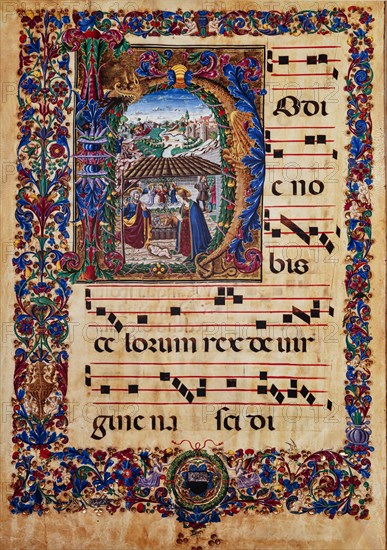 HOdi
e no
bis
ce lorum rex de uir
gine na sci di